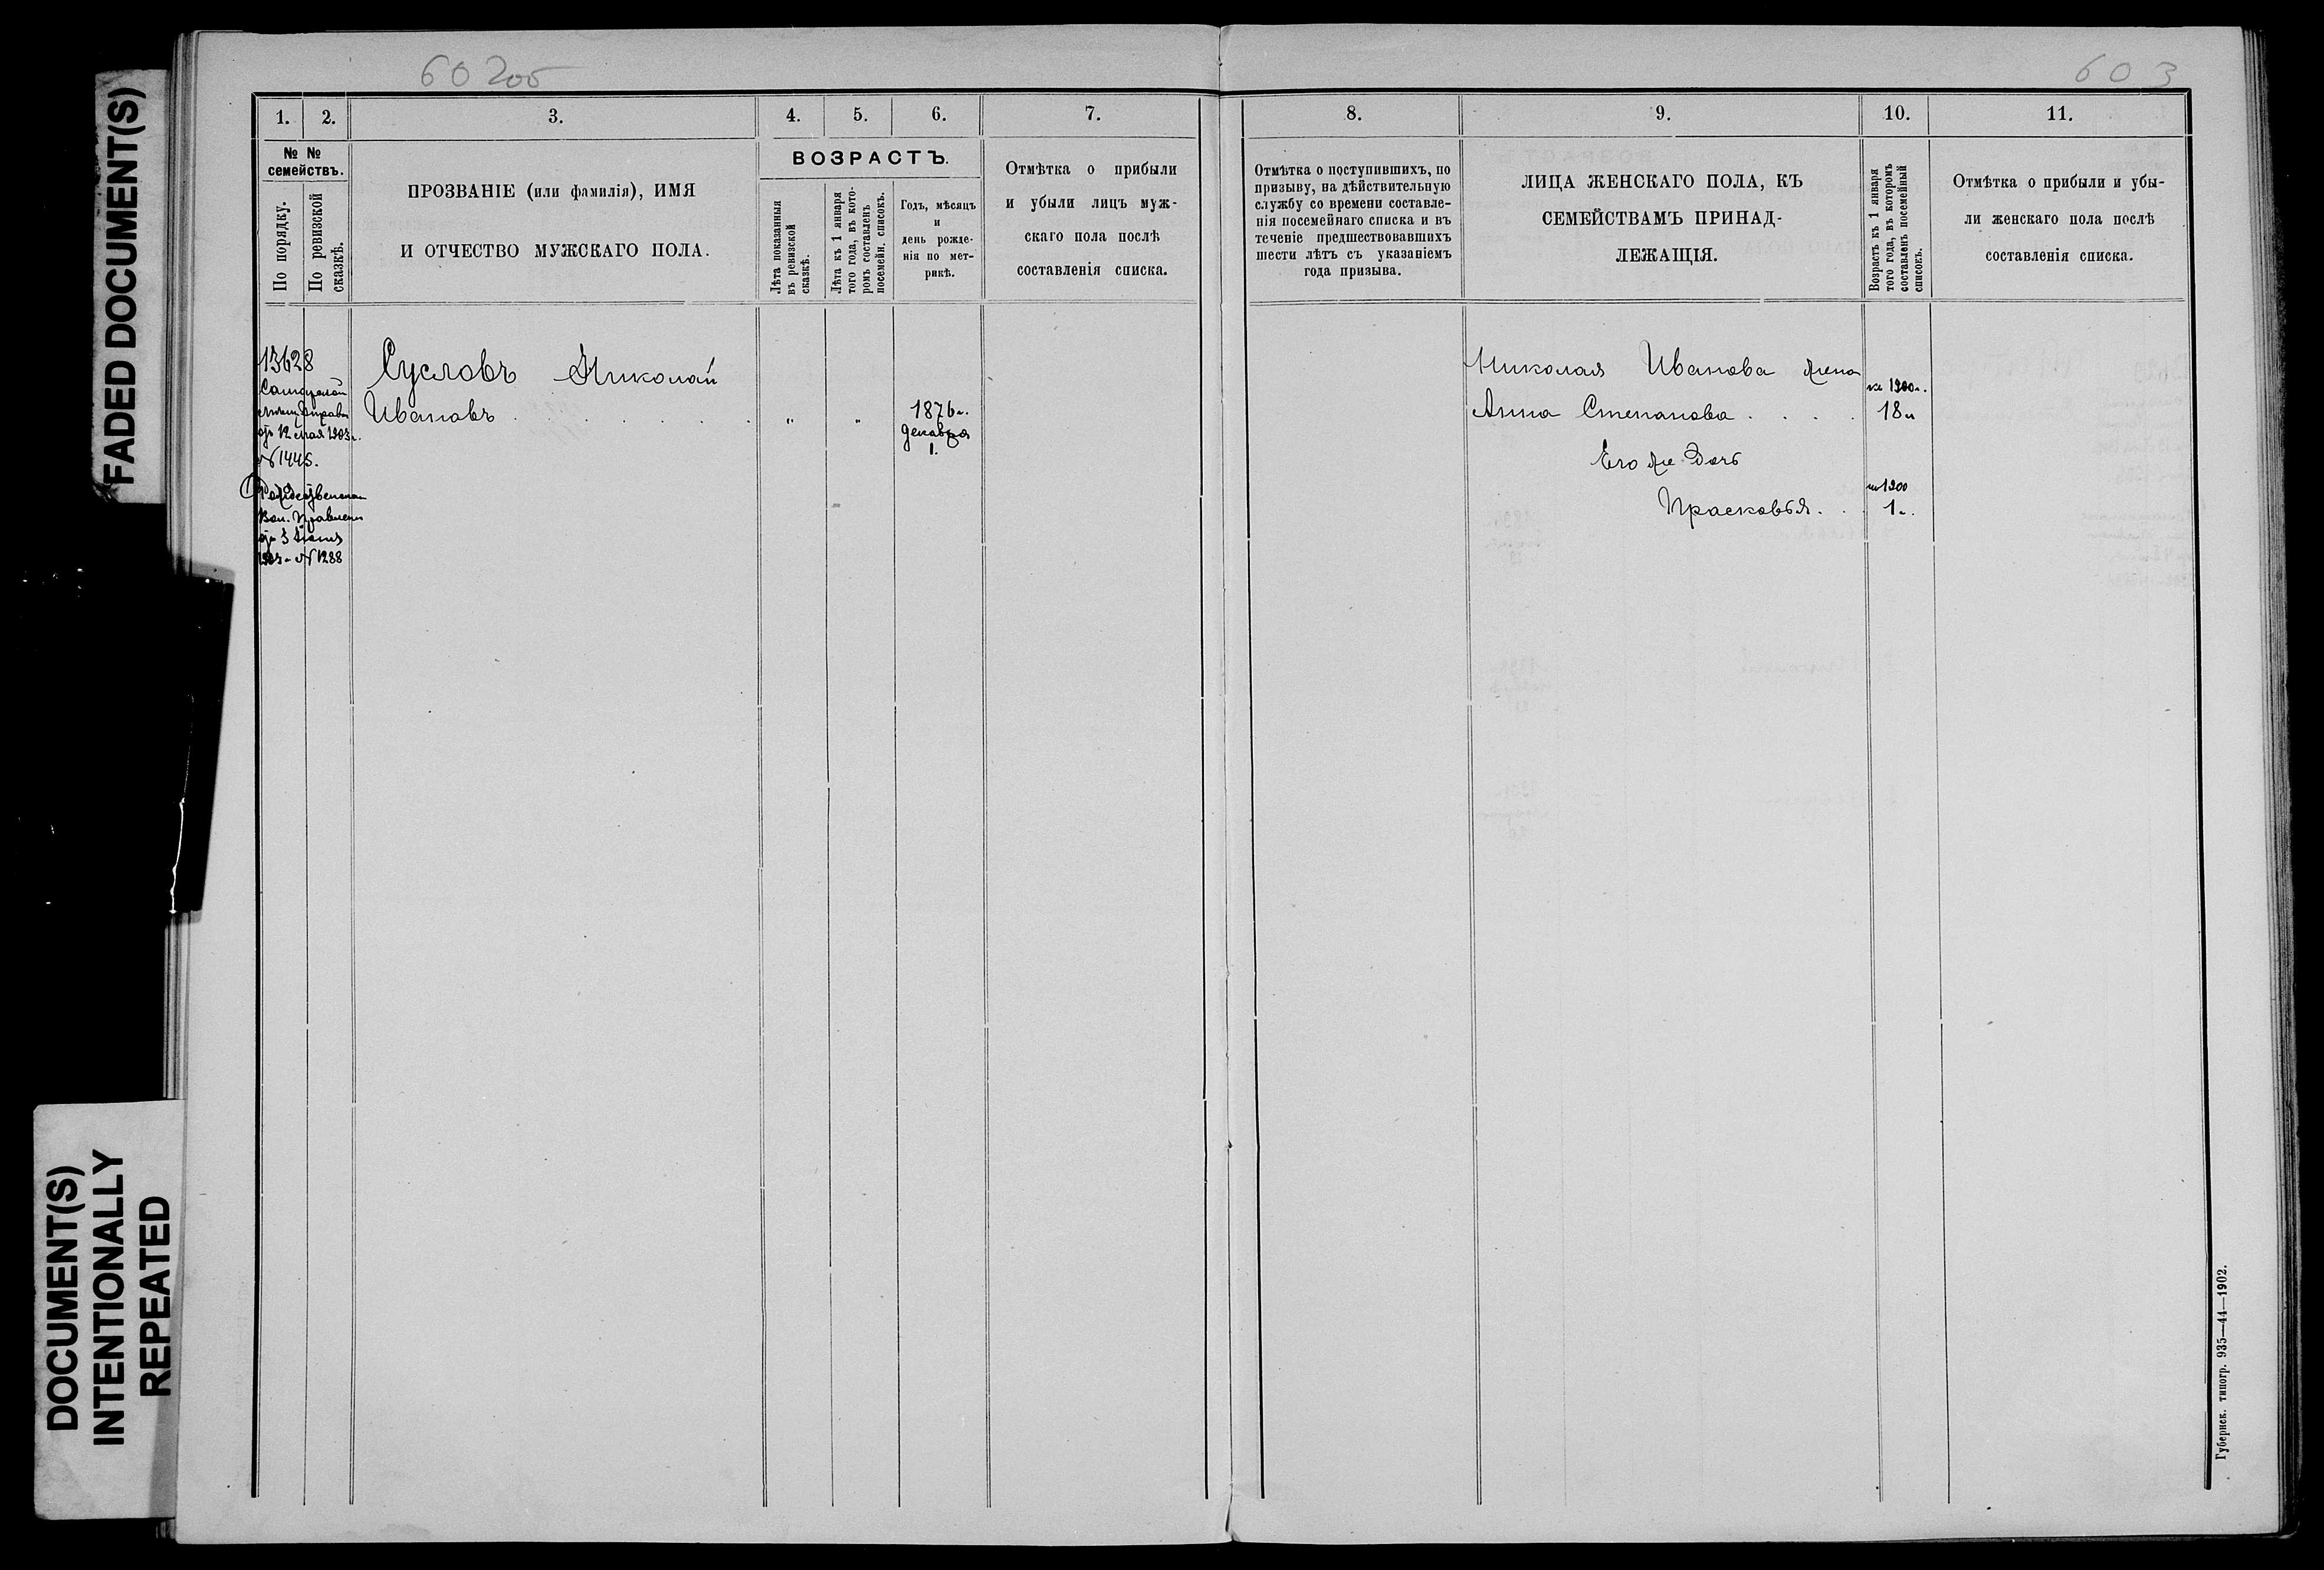 FADED DOCUMENT(S)
DOCUMENT(S)
INTENTIONALLY
REPEATED
60 2об
603
1.
2.
3.
4.
5.
6.
7.
№ №
семействъ.
По порядку.
По ревизской
сказкѣ.
ПРОЗВАНІЕ (или фамилія), ИМЯ
И ОТЧЕСТВО МУЖСКАГО ПОЛА.
ВОЗРАСТЪ.
Лѣта показанныя
въ ревизской
сказкѣ.
Лѣта къ 1 января
того года, въ кото-
ромъ составленъ
посемейн. списокъ.
Годъ, мѣсяцъ
и
день рожде-
нія по мет-
рикѣ.
Отмѣтка о прибыли
и убыли лицъ муж-
скаго пола послѣ
составленія списка.
13628
Самарской
мѣщ. управы
отъ 12 мая 1903 г.
№ 1445.
Рождественскаго
Вол. Правленія
отъ 3 Іюня
1903 г. № 1288
Сусловъ Николай
Ивановъ . . . . . .
" "
1876 г.
декабря
1.
8.
9.
10.
11.
Отмѣтка о поступившихъ, по
призыву, на дѣйствительную
службу со времени составле-
нія посемейнаго списка и въ
теченіе предшествовавшихъ
шести лѣтъ съ указаніемъ
года призыва.
ЛИЦА ЖЕНСКАГО ПОЛА, КЪ
СЕМЕЙСТВАМЪ ПРИНАД-
ЛЕЖАЩІЯ.
Возрастъ къ 1 января
того года, въ которомъ
составленъ посемейный
списокъ.
Отмѣтка о прибыли и убы-
ли женскаго пола послѣ
составленія списка.
Николая Иванова жена
Анна Степанова . . . .
на 1900 г.
18 л
Его же дочь
Прасковья. . .
на 1900
1 г.
Губернск. типогр. 935—44—1902.